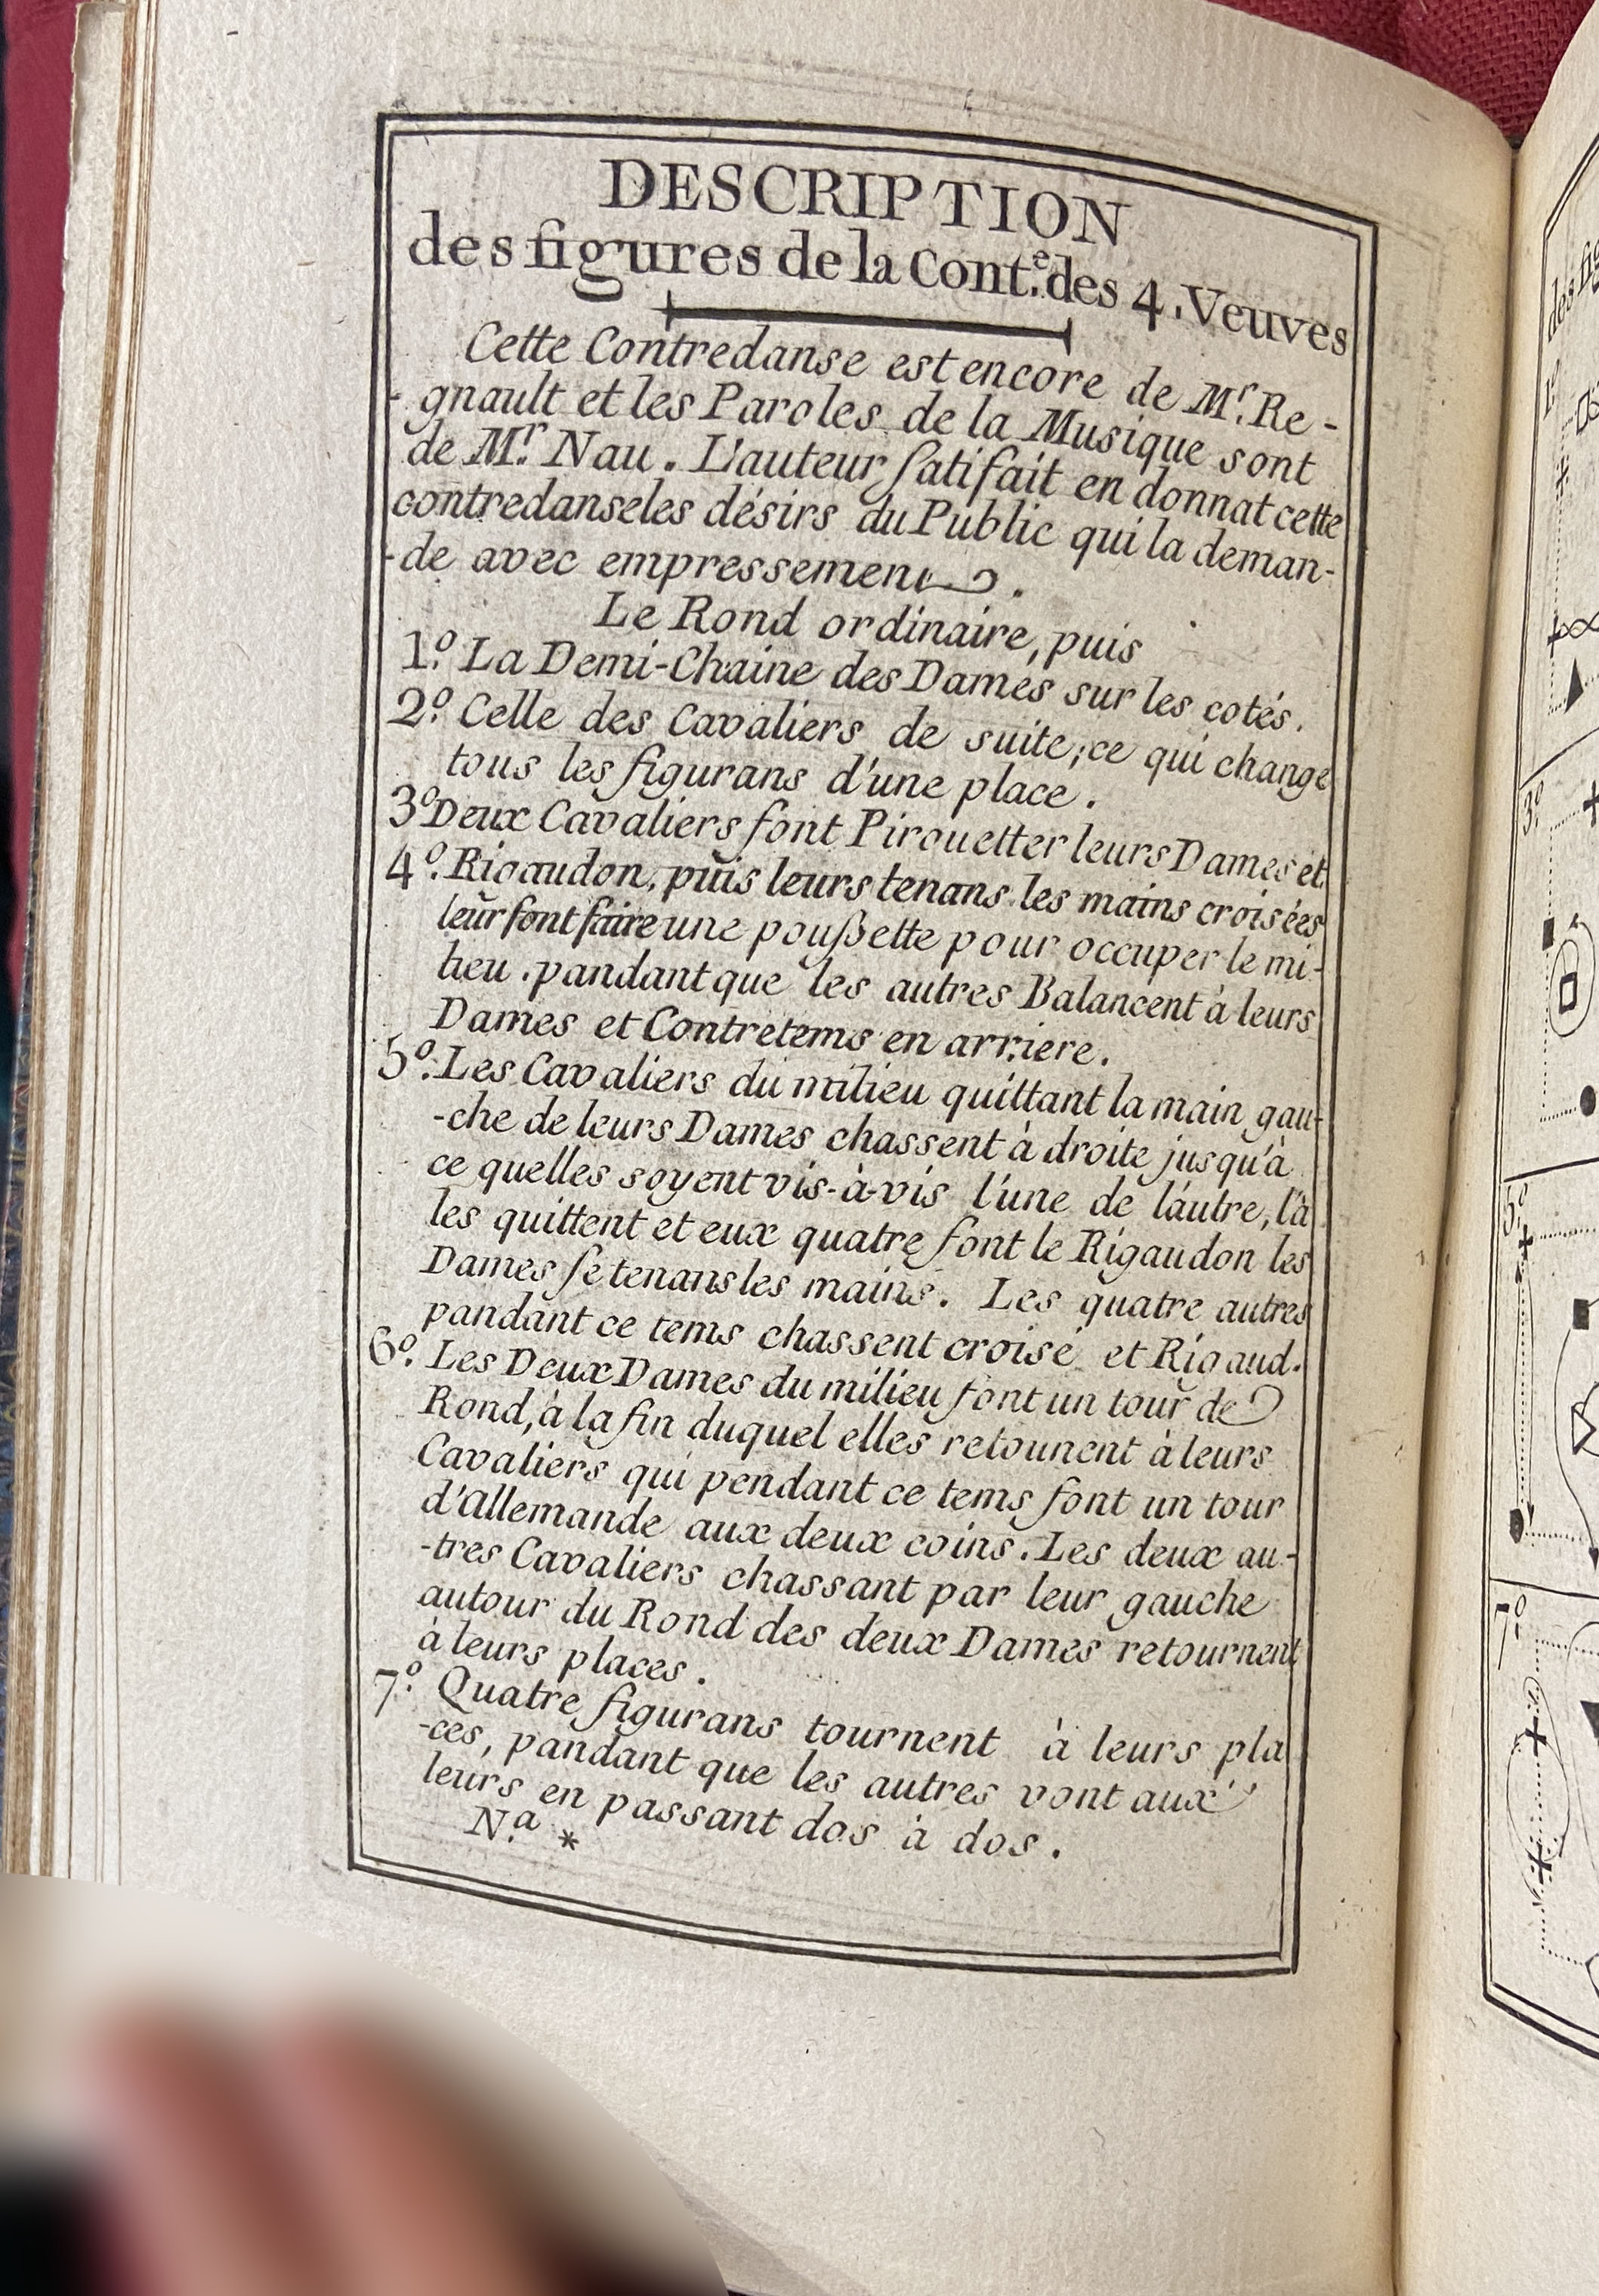 DESCRIPTION
des figures de la Cont.e des 4. Veuves
Cette Contredanse est encore de Mr. Re-
-gnault et les Paroles de la Musique sont
de Mr. Nau. L'auteur satifait en donnat cette
contredanse les désirs du Public qui la deman-
-de avec empressement.
Le Rond ordinaire, puis
1.o La Demi-Chaine des Dames sur les cotés.
2.o Celle des Cavaliers de suite; ce qui change
tous les figurans d'une place.
3.o Deux Cavaliers font Pirouetter leurs Dames et
4.o Rigaudon, puis leurs tenans les mains croisées
leur font faire une poußette pour occuper le mi-
lieu. pandant que les autres Balancent à leurs
Dames et Contretems en arriere.
5.o Les Cavaliers du milieu quittant la main gau-
-che de leurs Dames chassent à droite jusqu'à
ce quelles soyent vis-à-vis l'une de láutre, l'à
les quittent et eux quatre font le Rigaudon les
Dames se tenans les mains. Les quatre autres
pandant ce tems chassent croisé et Rigaud.
6.o Les Deux Dames du milieu font un tour de
Rond, à la fin duquel elles retounent à leurs
Cavaliers qui pendant ce tems font un tour
d'Allemande aux deux coins. Les deux au-
-tres Cavaliers chassant par leur gauche
autour du Rond des deux Dames retournent
à leurs places.
7.o Quatre figurans tournent à leurs pla
-ces, pandant que les autres vont aux
leurs en passant dos à dos.
N.a *
des fig
1.o
3.o
5.o
7.o